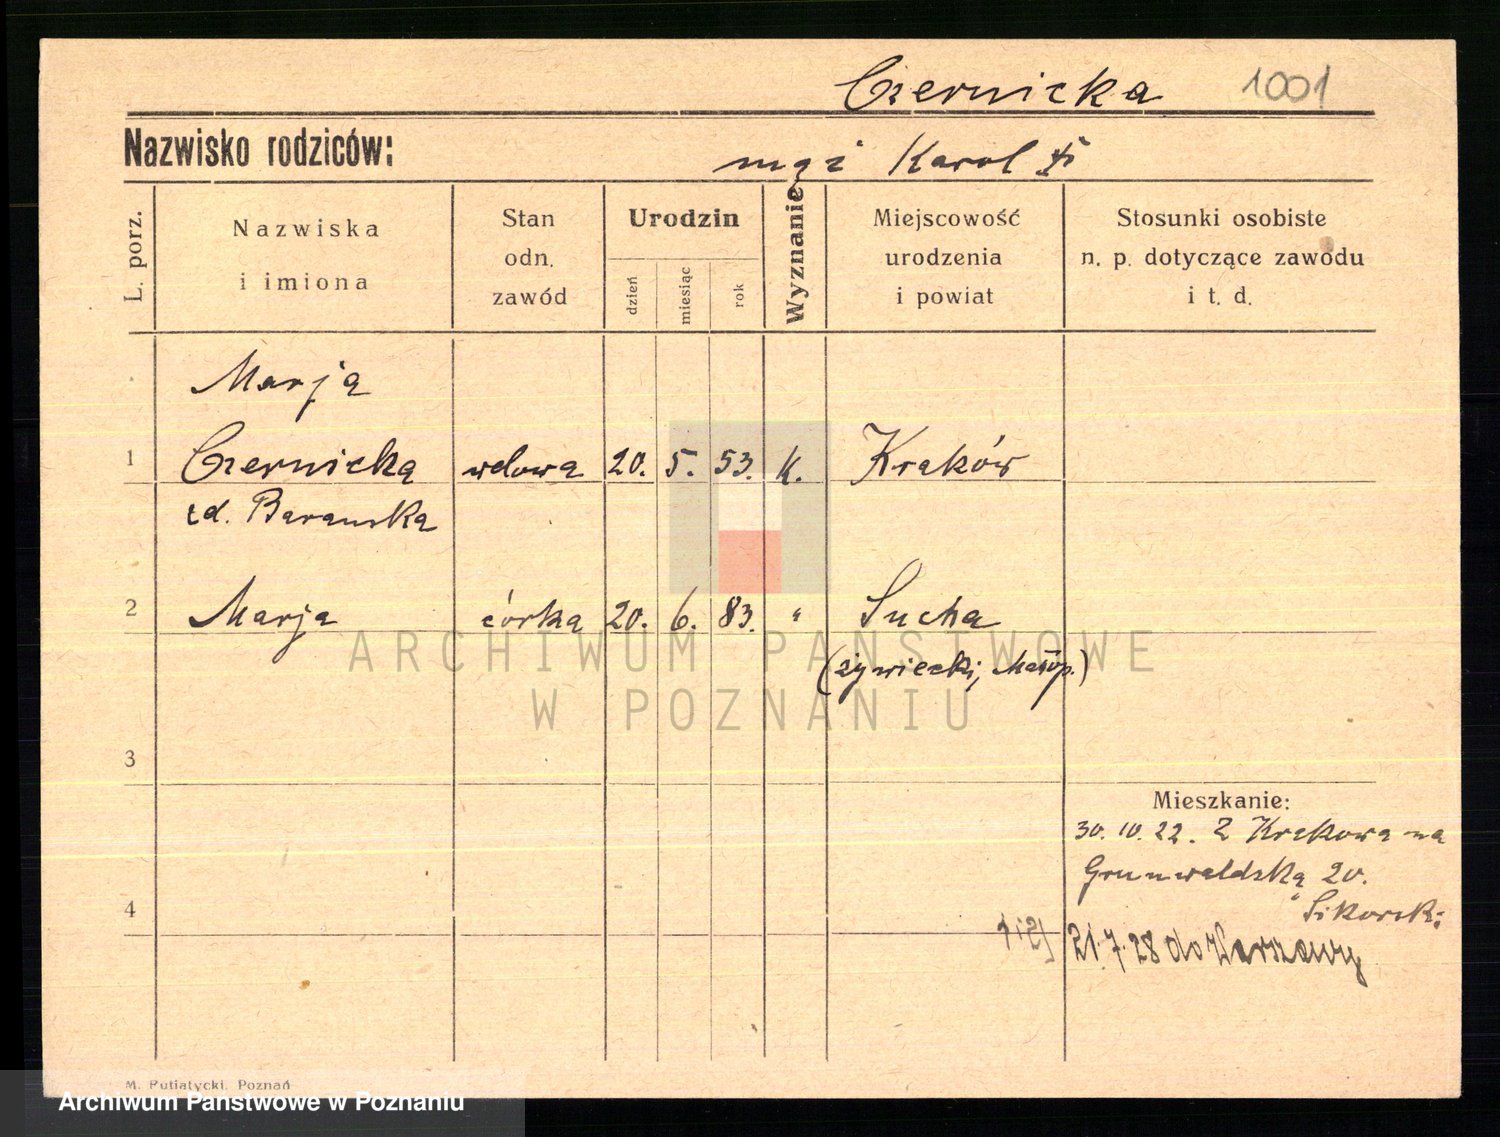 Czernicka 1001
Nazwisko rodziców:
mąż Karol
L. porz.
Nazwiska
i imiona
Stan
odn.
zawód
Urodzin
dzień
miesiąc
rok
Wyznanie
Miejscowość
urodzenia
i powiat
Stosunki osobiste
n. p. dotyczące zawodu
i t. d.
Marja
1 Czernicka wdowa 20. 5. 53. K. Kraków
zd. Barańska
2 Marja córka 20. 6. 83. " Sucha
(żywiecki, Małop.)
ARCHIWUM PAŃSTWOWE
W POZNANIU
3
Mieszkanie:
30. 10. 22. Z Krakowa na
Grunwaldską 20.
Sikorski
4
21. 7. 28 do Warszawy
M. Putiatycki, Poznań
Archiwum Państwowe w Poznaniu